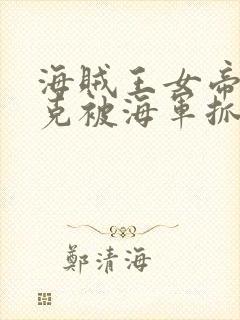 海賊王女帝
克被海軍抓
鄭清海